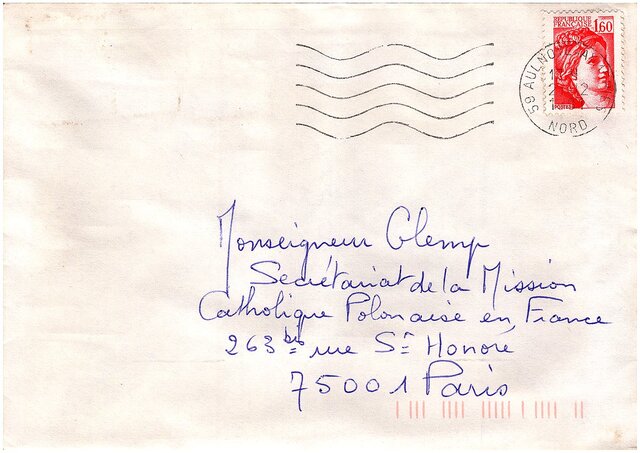 REPUBLIQUE
FRANÇAISE 1,60
POSTES
59 AULNO
NORD
Monseigneur Glemp
Secrétariat de la Mission
Catholique Polonaise en France
263 bis rue St Honoré
75001 Paris